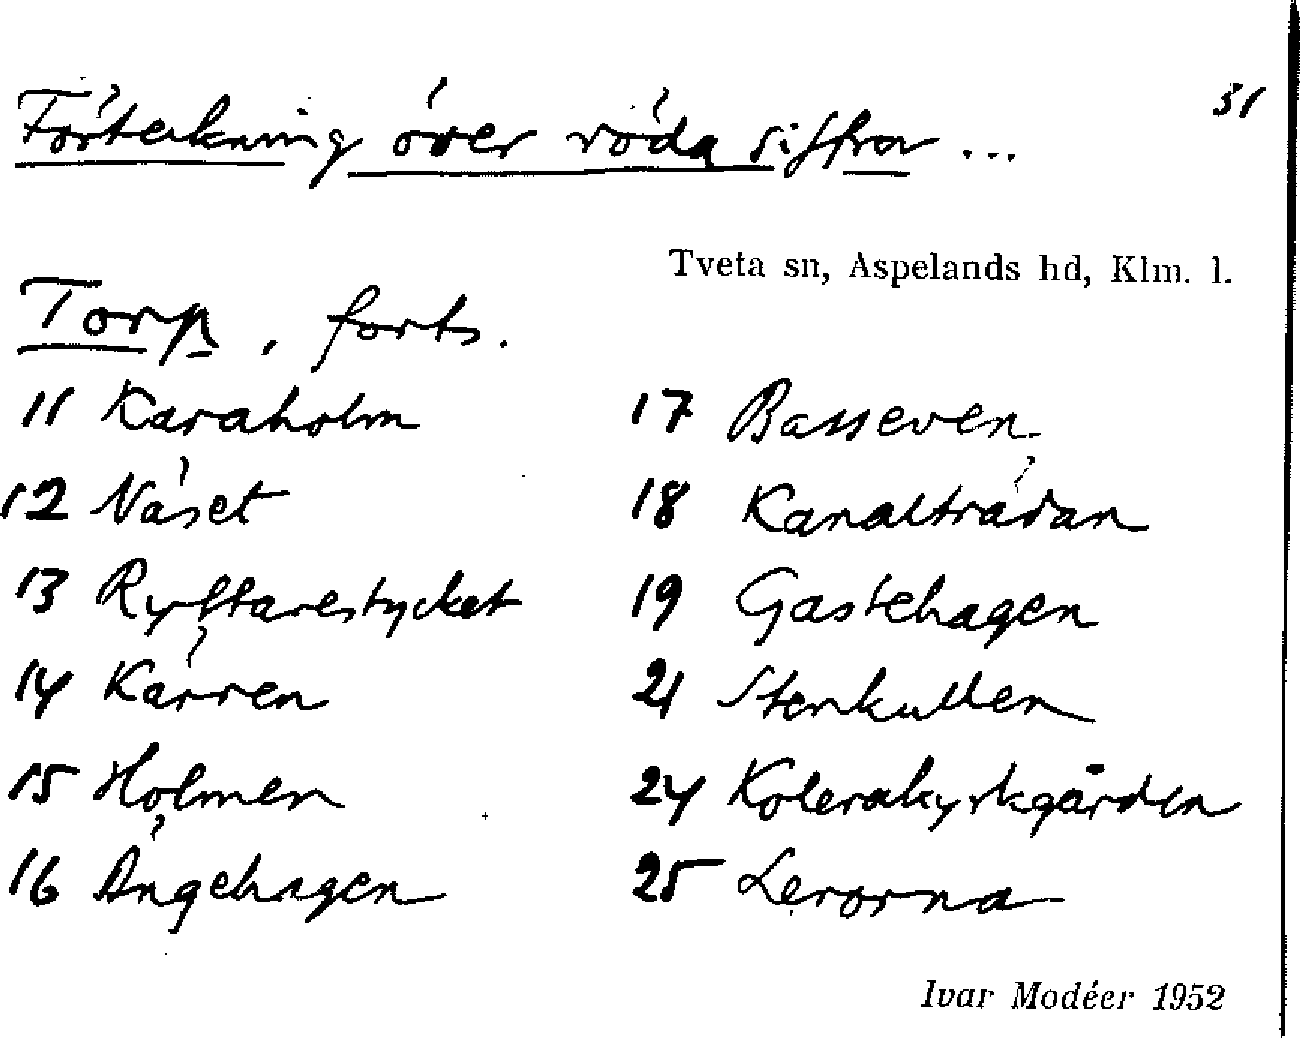 31
Förteckning över röda siffror ...
Tveta sn, Aspelands hd, Klm. l.
Torp, forts.
11 Karaholm
12 Näset
13 Ryftarestycket
14 Kärren
15 Holmen
16 Ängehagen
17 Basseven
18 Kanalträdan
19 Gastehagen
21 Stenkullen
24 Kolerakyrkgården
25 Lerorna
Ivar Modéer 1952